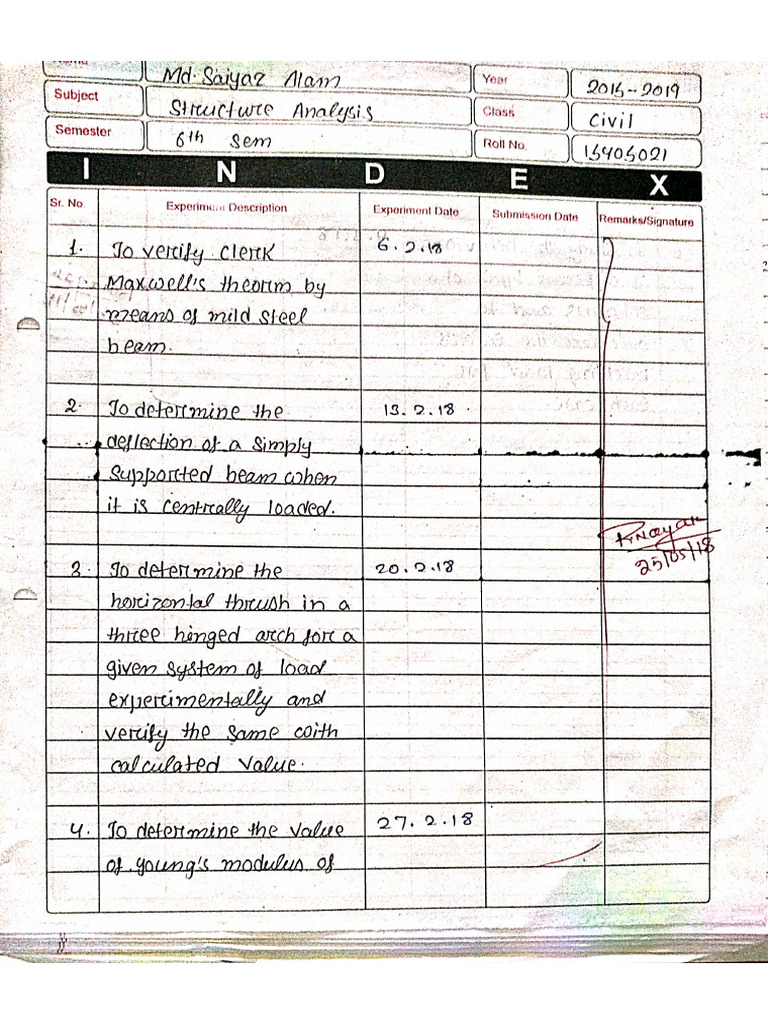 Md. Saiyaz Alam
Year 2015-2019
Subject Structure Analysis
Class Civil
Semester 6th Sem
Roll No. 15405021
INDEX
Sr. No. Experiment Description Experiment Date Submission Date Remarks/Signature
1. To verify Clerk 6.2.18
Maxwell's theorm by
means of mild steel
beam.
2. To determine the 13.2.18
deflection of a simply
supported beam when
it is centrally loaded.
25/05/18
3. To determine the 20.2.18
horizontal thrush in a
three hinged arch for a
given system of load
experimentally and
verify the same with
calculated value.
4. To determine the value 27.2.18
of young's modulus of